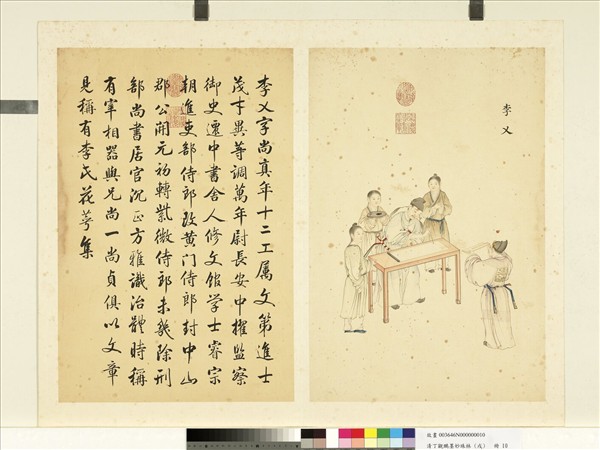 李乂
李乂字尚真年十二工属文第進士
茂才異等調萬年尉長安中擢監察
御史遷中書舍人修文館学士睿宗
朝進吏部侍郎改黄门侍郎封中山
郡公開元初轉紫微侍郎未幾除刑
部尚書居官沉正方雅識治體時稱
有宰相器與兄尚一尚貞俱以文章
見稱有李氏花萼集
故畫 003646N000000010
清丁觀鵬墨妙珠林（戌） 冊 10